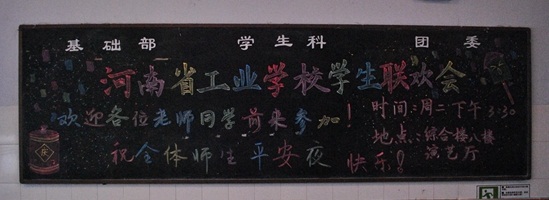 基础部 学生科 团委
河南省工业学校学生联欢会
欢迎各位老师同学前来参加！
祝全体师生平安夜快乐！
时间：周二下午3:30
地点：综合楼八楼
演艺厅